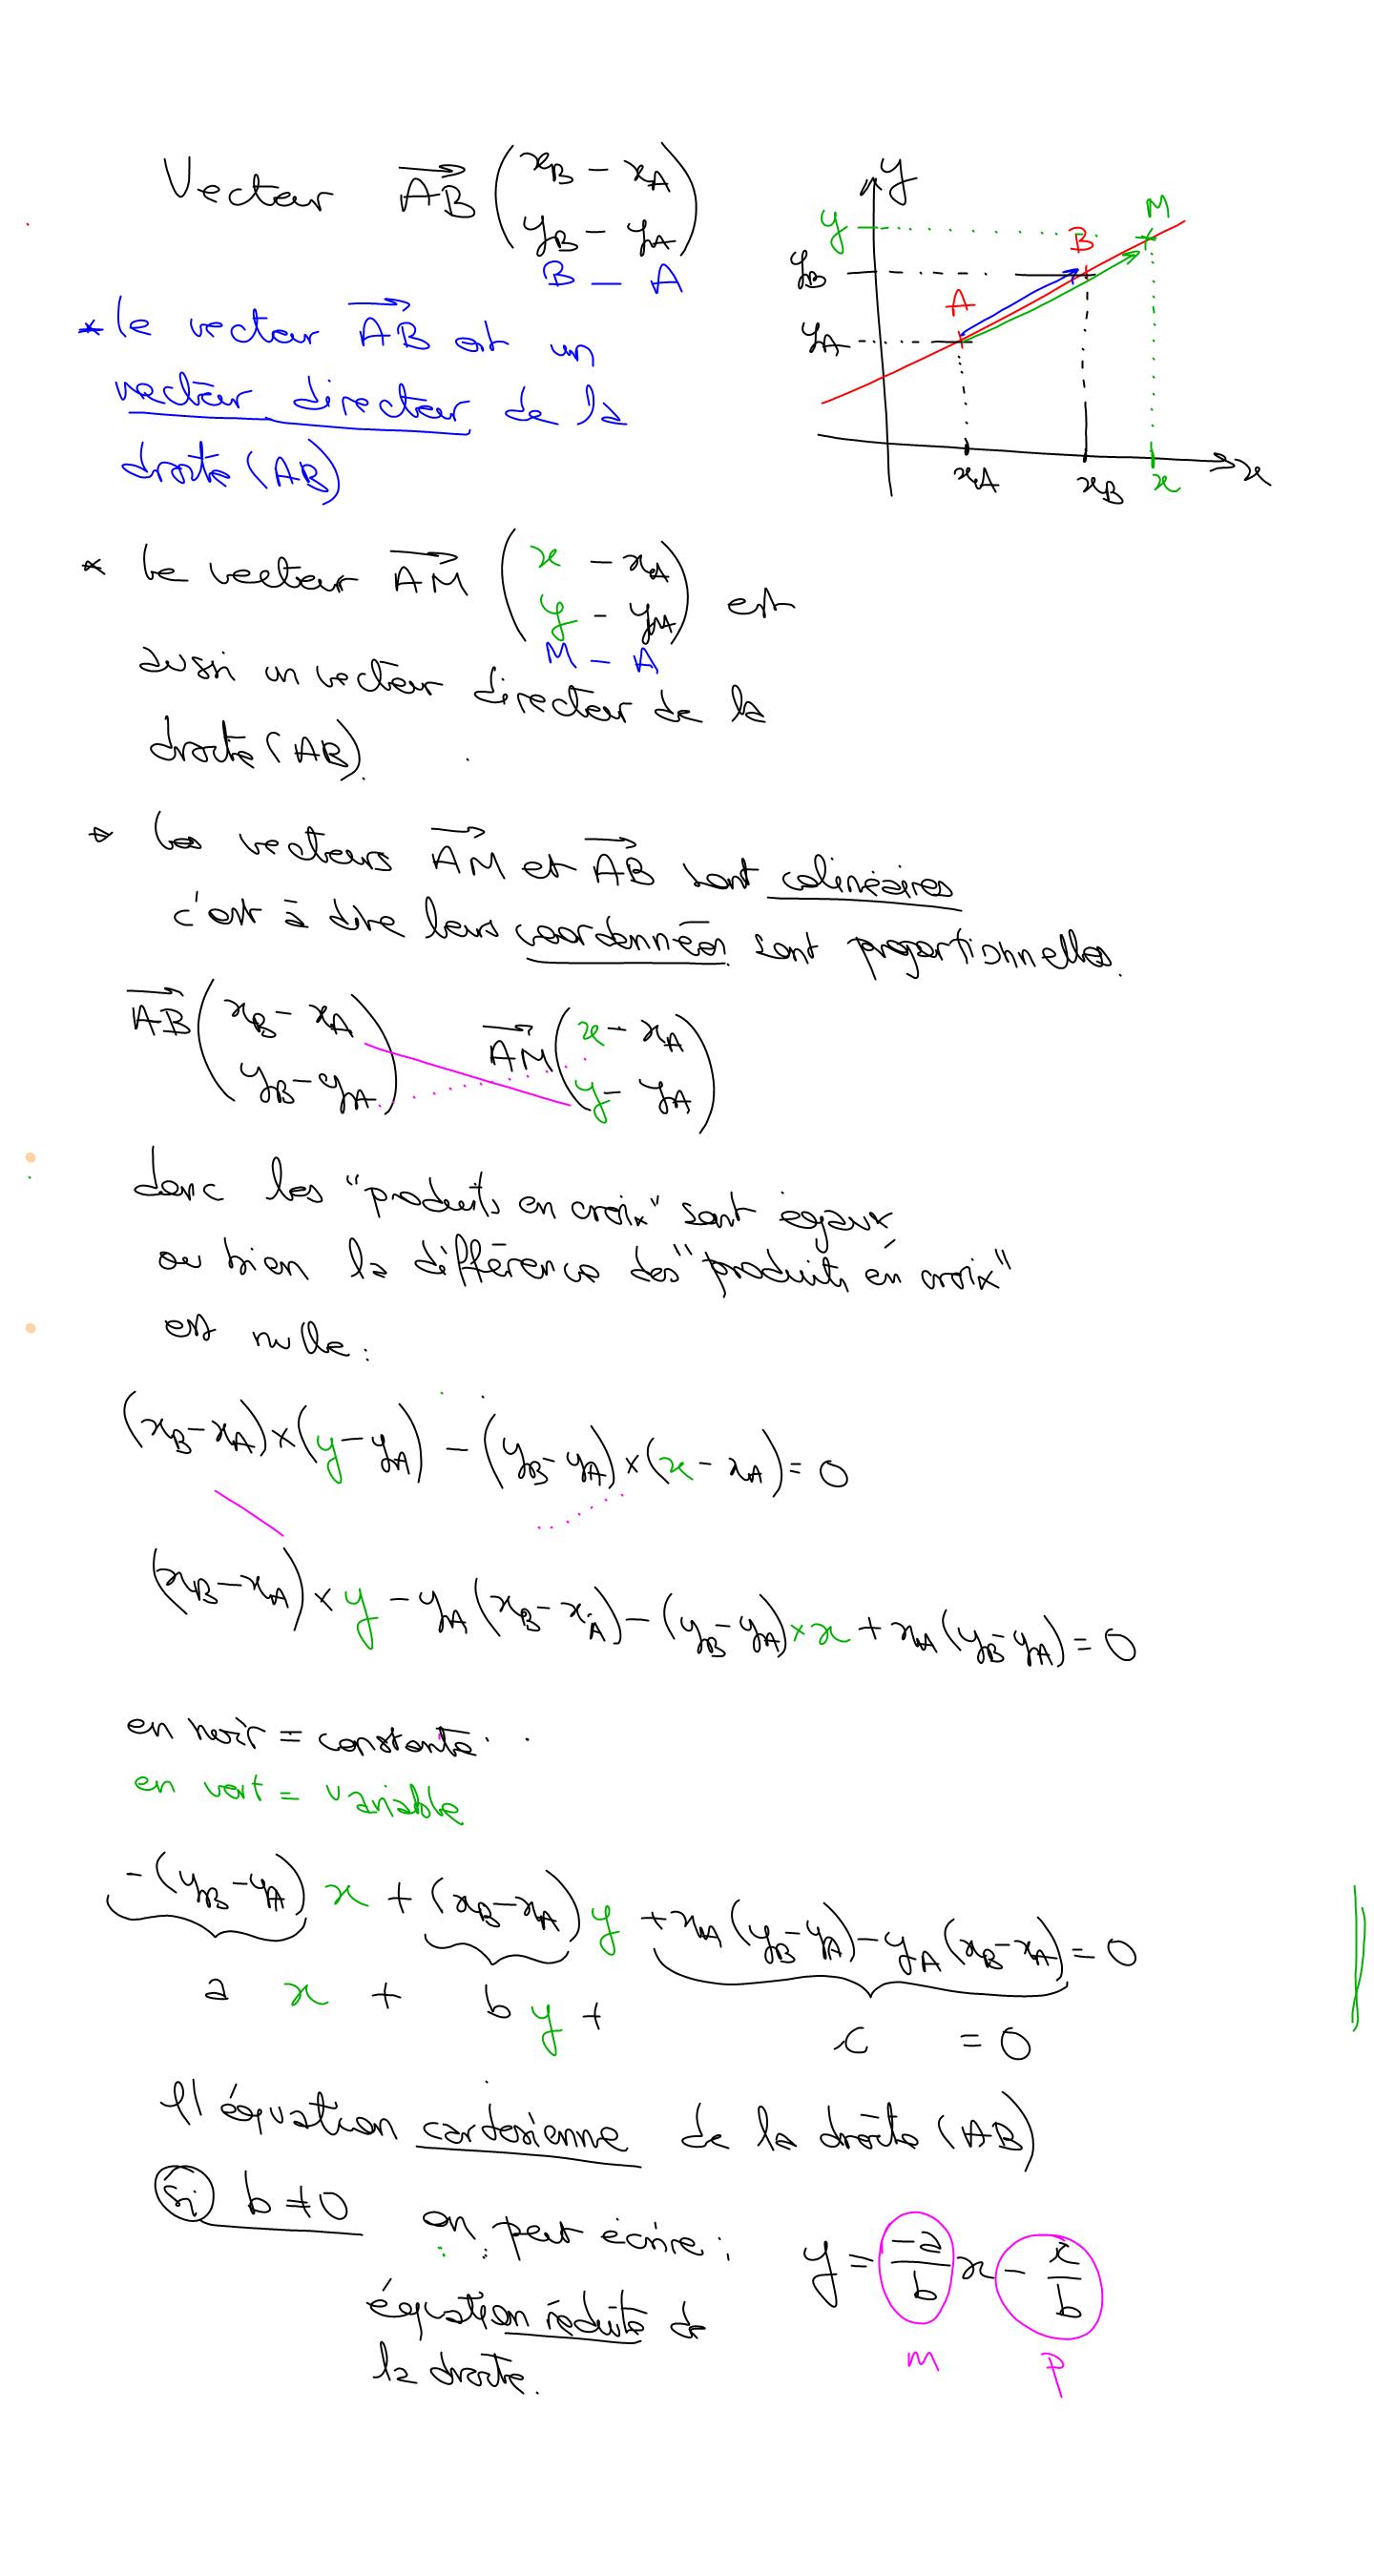 Vecteur AB (xB - xA
yB - yA)
B - A
y
y
M
B
yB
A
yA
xA
xB
x
x
* le vecteur AB est un
vecteur directeur de la
droite (AB)
* Le vecteur AM (x - xA
y - yA) est
M - A
aussi un vecteur directeur de la
droite (AB).
* les vecteurs AM et AB sont colinéaires
c'est à dire leurs coordonnées sont proportionnelles.
AB (xB - xA
yB - yA) AM (x - xA
y - yA)
donc les "produits en croix" sont égaux,
ou bien la différence des "produits en croix"
est nulle :
(xB - xA) × (y - yA) - (yB - yA) × (x - xA) = 0
(xB - xA) × y - yA (xB - xA) - (yB - yA) × x + xA (yB - yA) = 0
en noir = constante
en vert = variable
-(yB - yA) x + (xB - xA) y + xA (yB - yA) - yA (xB - xA) = 0
a x + b y + c = 0
l'équation cartésienne de la droite (AB)
si b ≠ 0 on peut écrire : y = -a/b x - c/b
m p
équation réduite de
la droite.